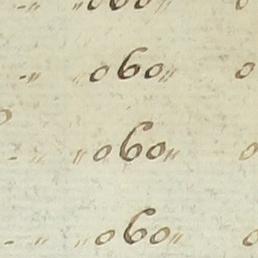 -〃 〃060〃 0
-〃 〃060〃 0
-〃 〃060〃 0
-〃 〃060〃 0